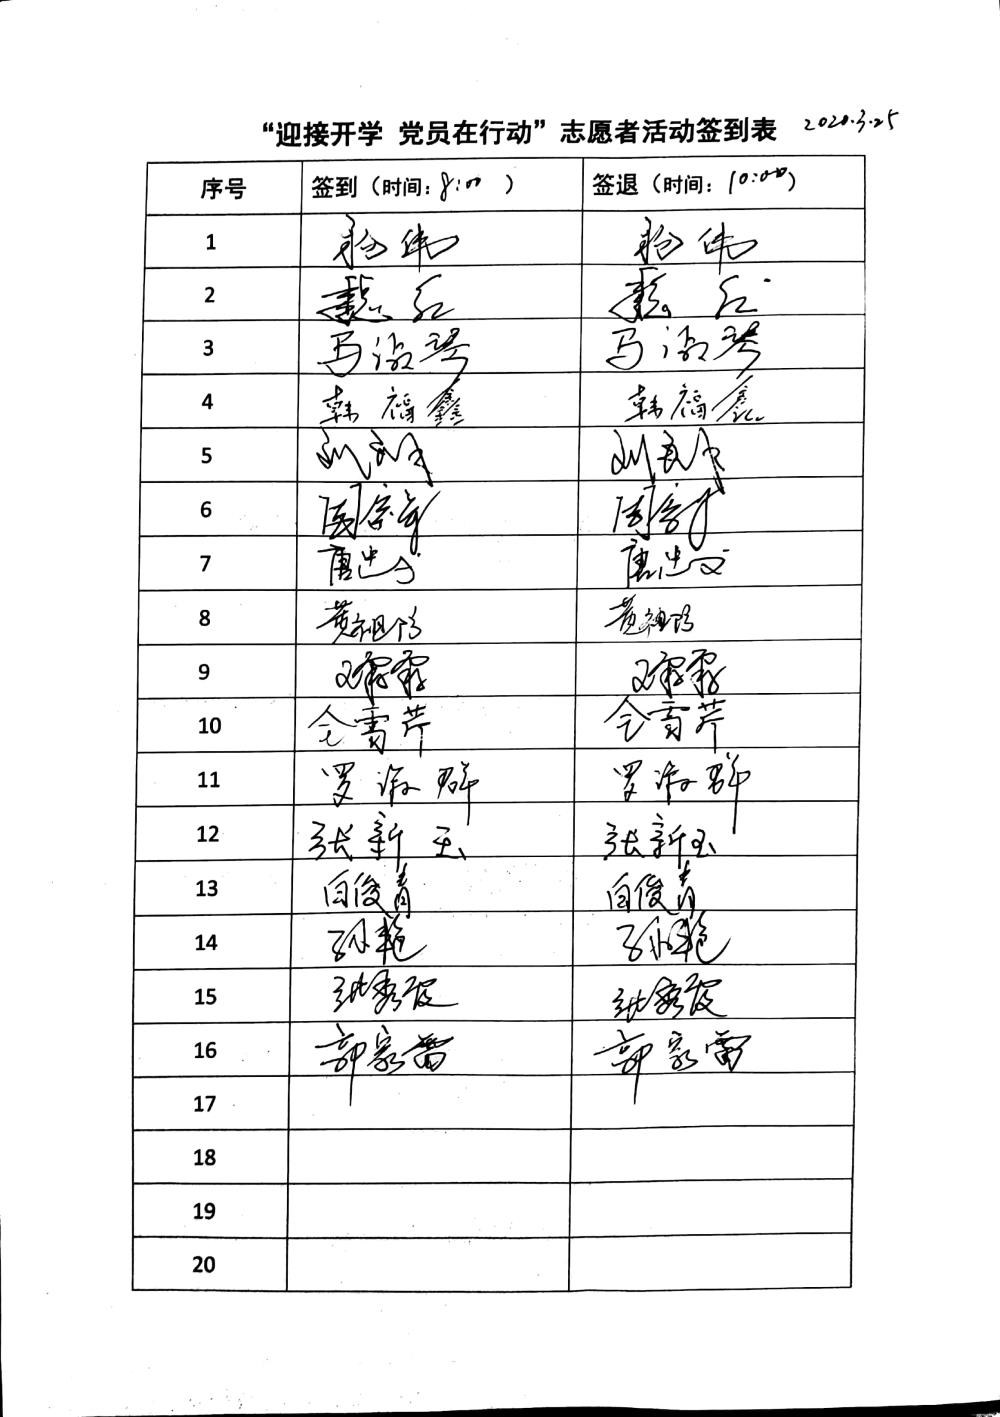 “迎接开学 党员在行动”志愿者活动签到表 2020.3.25
序号 签到（时间：8:00 ） 签退（时间：10:00）
1 杨伟 杨伟
2 魏红 魏红
3 马淑琴 马淑琴
4 韩福鑫 韩福鑫
5
6
7 唐忠文 唐忠文
8 黄祖阳 黄祖阳
9
10 仝雪芹 仝雪芹
11 罗淑群 罗淑群
12 张新玉 张新玉
13 白俊青 白俊青
14 孙艳 孙艳
15
16 郭家雷 郭家雷
17
18
19
20